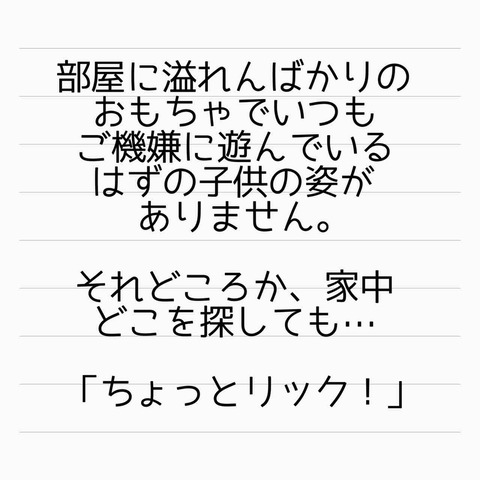 部屋に溢れんばかりの
おもちゃでいつも
ご機嫌に遊んでいる
はずの子供の姿が
ありません。
それどころか、家中
どこを探しても…
「ちょっとリック！」